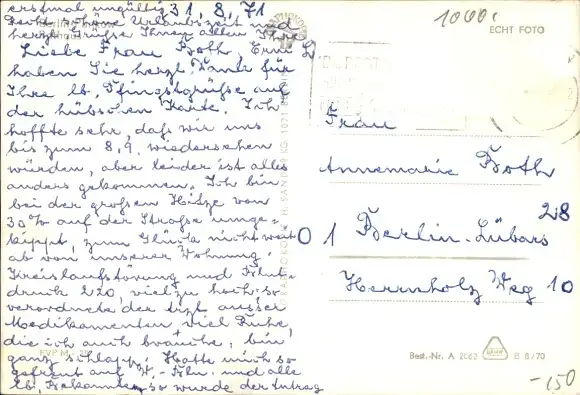 erstmal ungültig 31.8.71
Recht schöne Urlaubszeit und
herzl. Grüße Ihnen allen Ihre
Liebe Frau Both. Ernst L
haben Sie herzl. Dank für
Ihre lb. Pfingstgrüße auf
der hübschen Karte. Ich
hoffte sehr, daß wir uns
bis zum 8.9. wiedersehen
würden, aber leider ist alles
anders gekommen. Ich bin
bei der großen Hitze von
30% auf der Straße umge-
kippt, zum Glück nicht weit
ab von unserer Wohnung.
Kreislaufstörung und Blut-
druck 220, viel zu hoch. so
verordnete der Arzt ausser
Medikamenten, viel Ruhe,
die ich auch brauche, bin
ganz schlapp. Hatte mich so
gefreut auf W.-Bln. und alle
lb. Bekannten, so wurde der Antrag
1000,
ECHT FOTO
Frau
Annemarie Both
28
O 1 Berlin-Lübars
Herrnholz Weg 10
Best.-Nr. A 2062
B 8/70
-150